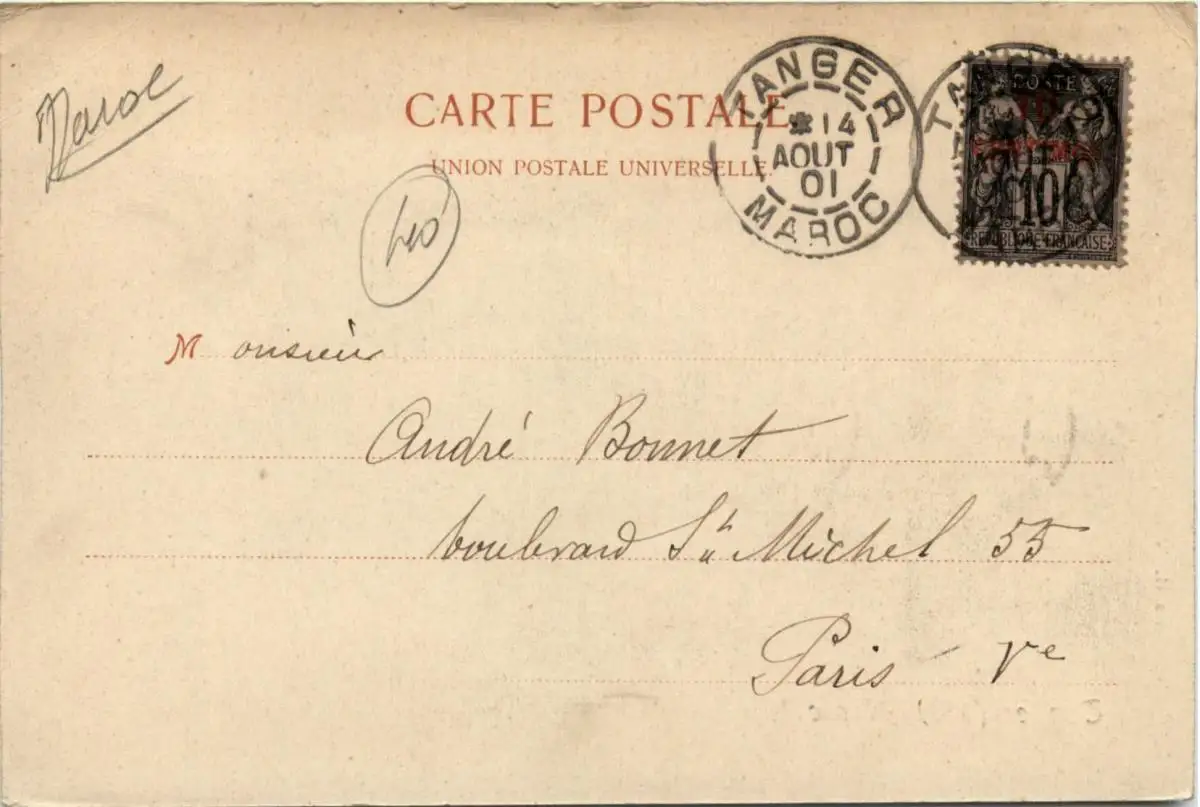 Maroc
CARTE POSTALE
UNION POSTALE UNIVERSELLE.
TANGER
* 14
AOUT
01
MAROC
POSTE
10
CENTIMOS
10
REPUBLIQUE FRANÇAISE
40
Monsieur
André Bonnet
boulevard St Michel 55
Paris Ve